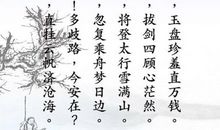 ，玉盘珍羞直万钱。
，拔剑四顾心茫然。
，将登太行雪满山。
，忽复乘舟梦日边。
！多歧路，今安在？
，直挂云帆济沧海。